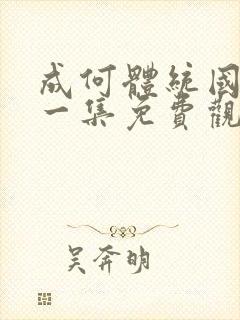 成何體統國
一集免費觀
吳奔明